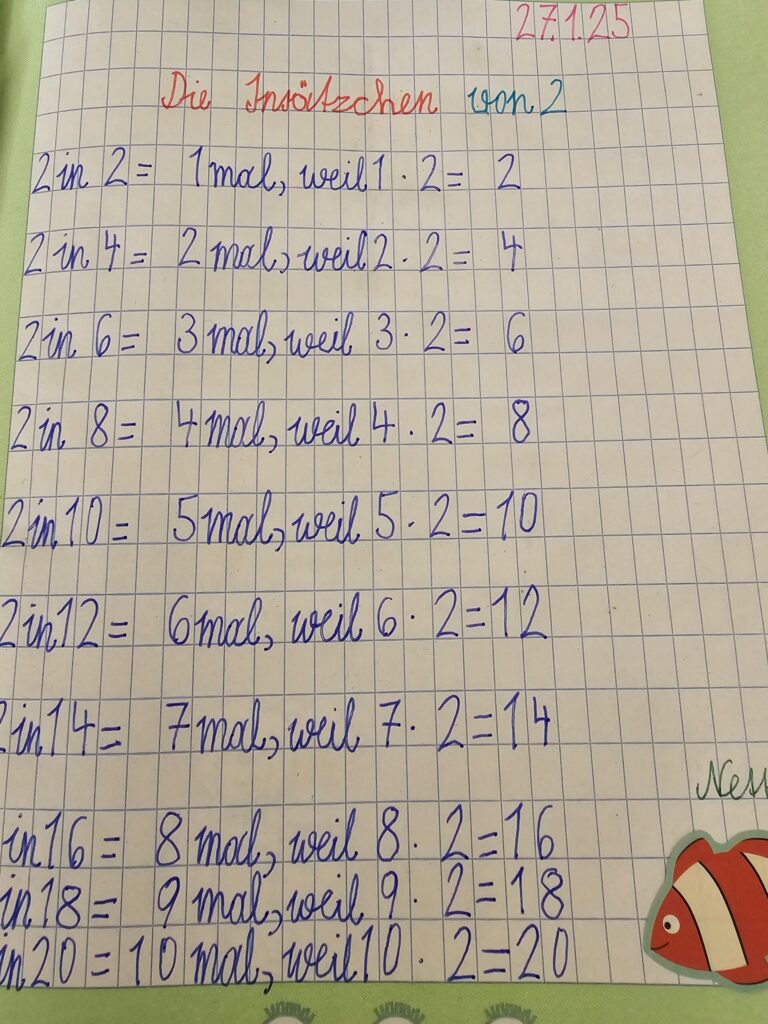 27.1.25
Die Insätzchen von 2
2 in 2 = 1 mal, weil 1 · 2 = 2
2 in 4 = 2 mal, weil 2 · 2 = 4
2 in 6 = 3 mal, weil 3 · 2 = 6
2 in 8 = 4 mal, weil 4 · 2 = 8
2 in 10 = 5 mal, weil 5 · 2 = 10
2 in 12 = 6 mal, weil 6 · 2 = 12
2 in 14 = 7 mal, weil 7 · 2 = 14
in 16 = 8 mal, weil 8 · 2 = 16
in 18 = 9 mal, weil 9 · 2 = 18
in 20 = 10 mal, weil 10 · 2 = 20